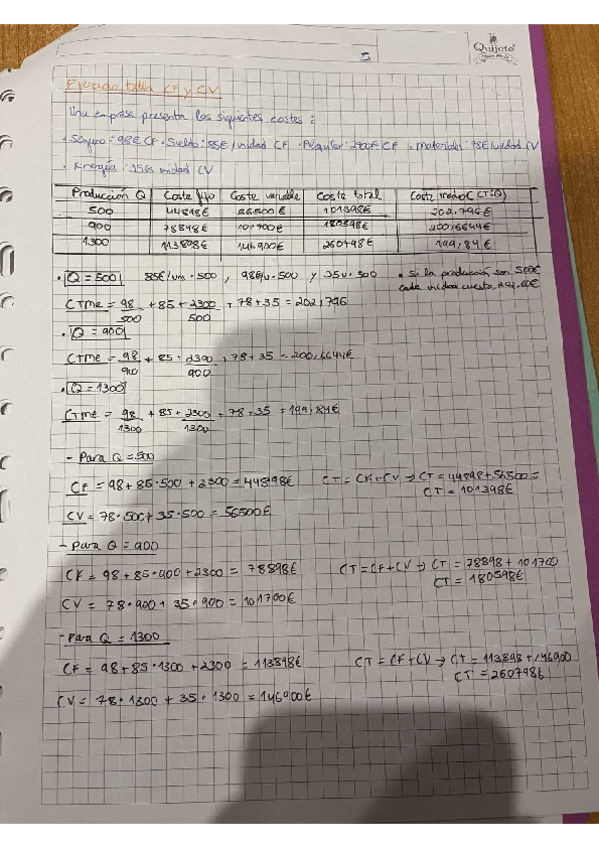 Quijote
5
Ejercicio tabla CF y CV
Una empresa presenta los siguientes costes :
· Seguro: 98€ CF · Sueldo: 85€/unidad CF · Alquiler: 2300€ CF · Materiales: 78€/unidad CV
· Energía: 35€ unidad CV
Producción Q Coste fijo Coste variable Coste total Coste medio (CT:Q)
500 44898€ 56500€ 101398€ 202,796€
900 78898€ 101700€ 180598€ 200,6644€
1300 113898€ 146900€ 260798€ 199,84€
· Q = 500 85€/um · 500 , 98€/u · 500 y 35u · 500 · Si la producción son 500€
cada unidad cuesta
CTMe = 98/500 + 85 + 2300/500 + 78 + 35 = 202,796
· Q = 900
CTMe = 98/900 + 85 + 2300/900 + 78 + 35 = 200,6644€
· Q = 1300
CTMe = 98/1300 + 85 + 2300/1300 + 78 + 35 = 199,84€
- Para Q = 500
CF = 98 + 85 · 500 + 2300 = 44898€ CT = CF + CV → CT = 44898 + 56500 =
CT = 101398€
CV = 78 · 500 + 35 · 500 = 56500€
- Para Q = 900
CF = 98 + 85 · 900 + 2300 = 78898€ CT = CF + CV → CT = 78898 + 101700
CT = 180598€
CV = 78 · 900 + 35 · 900 = 101700€
- Para Q = 1300
CF = 98 + 85 · 1300 + 2300 = 113898€ CT = CF + CV → CT = 113898 + 146900
CT = 260798€
CV = 78 · 1300 + 35 · 1300 = 146900€